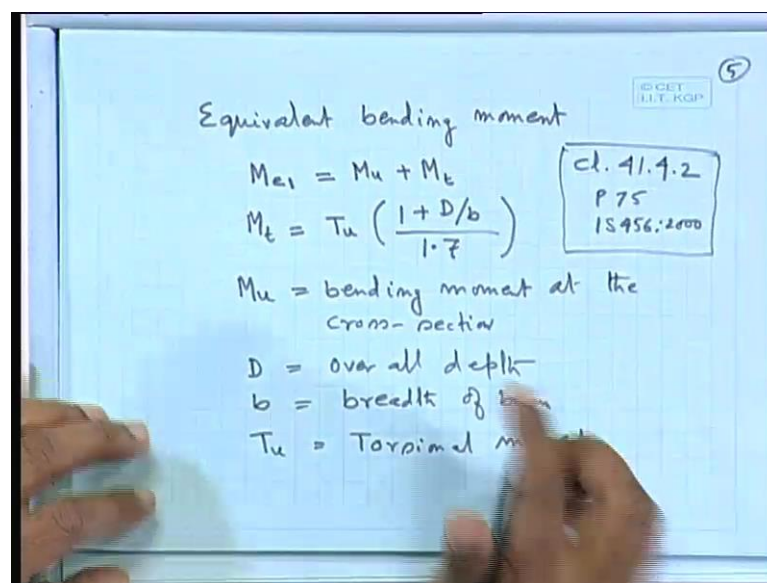 5
© CET
I.I.T. KGP
Equivalent bending moment
Me1 = Mu + Mt
Mt = Tu ( 1 + D/b / 1.7 )
cl. 41.4.2
P 75
IS 456:2000
Mu = bending moment at the
cross-section
D = over all depth
b = breadth of
Tu = Torsional